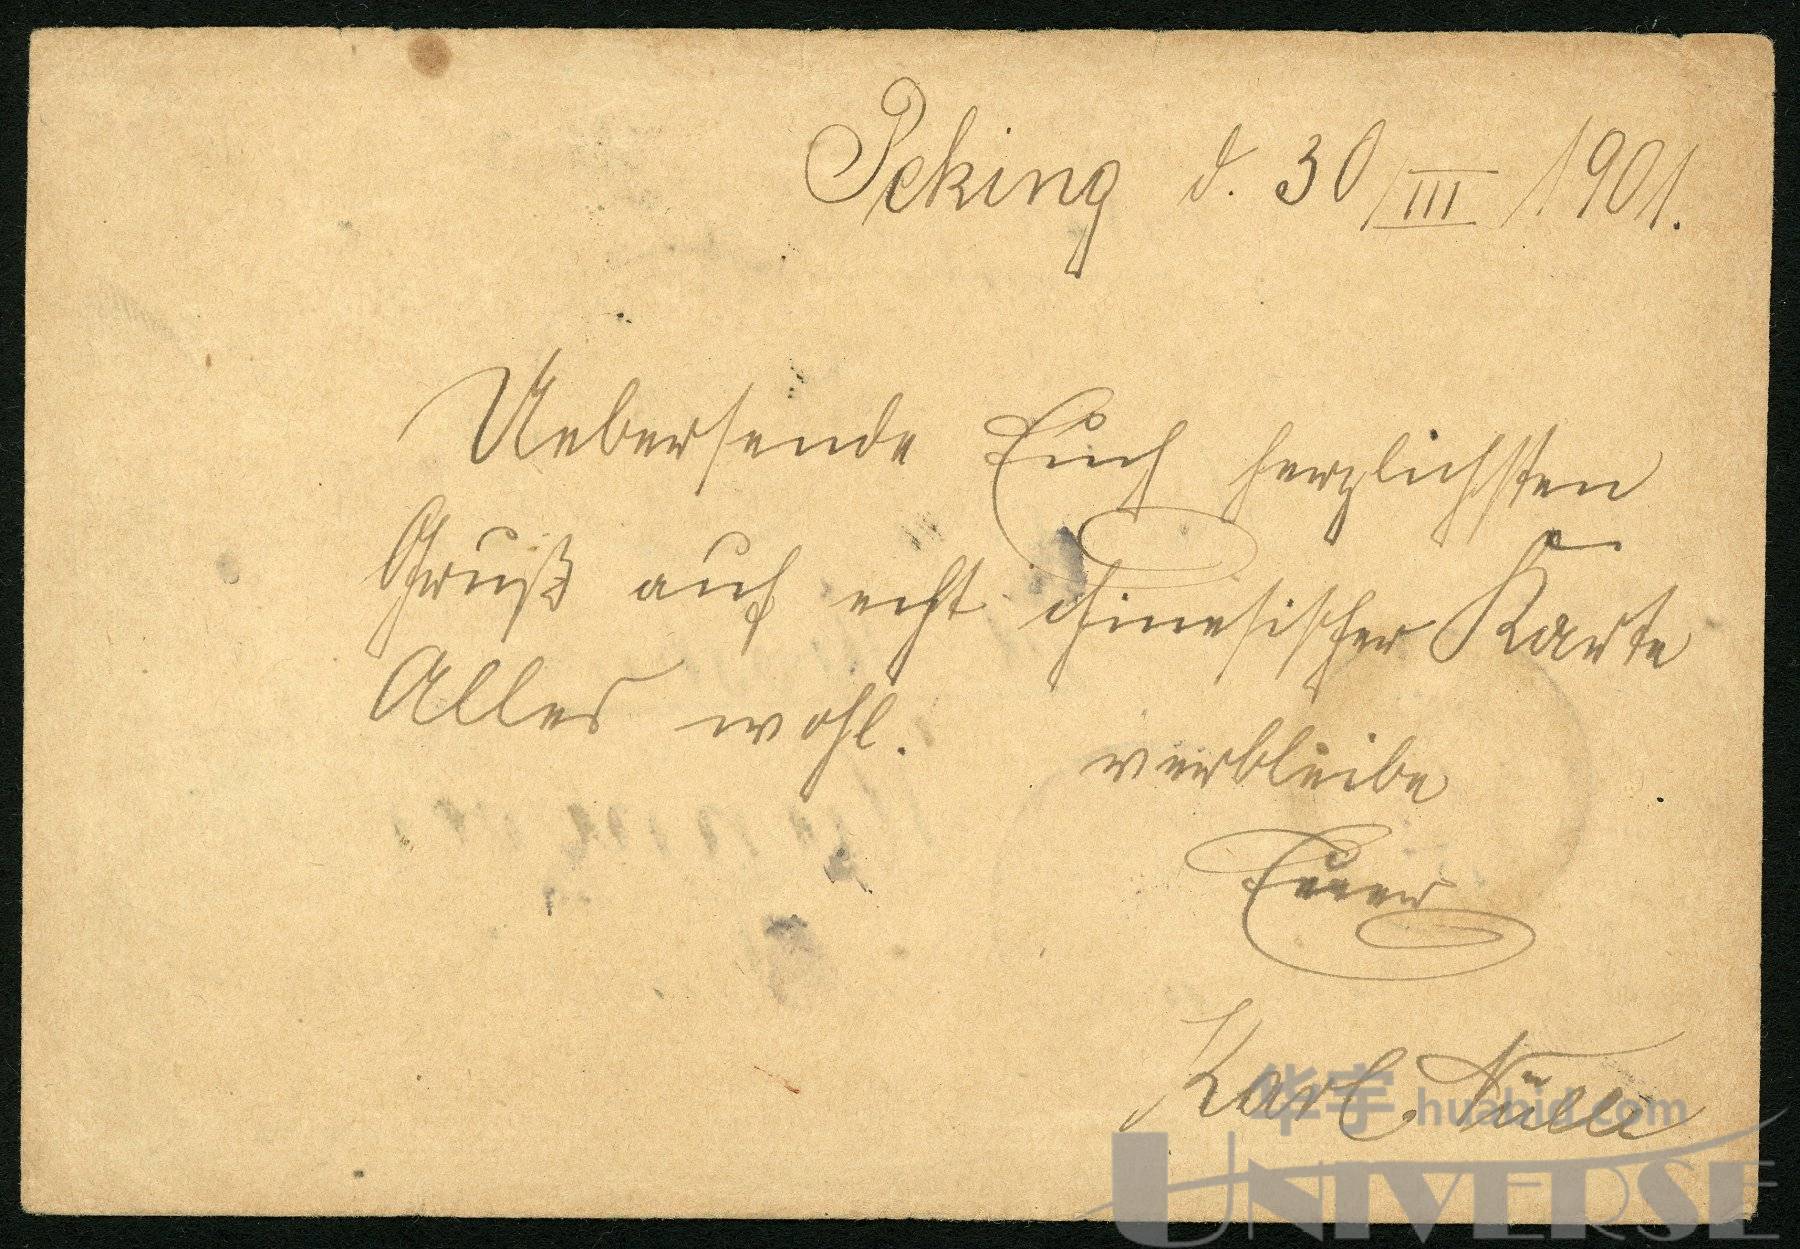 Peking d. 30/III/1901.
Uebersende Euch herzlichsten
Gruß auf echt chinesischer Karte
Alles wohl.
verbleibe
Euer
Karl
华宇 huabid.com
UNIVERSE